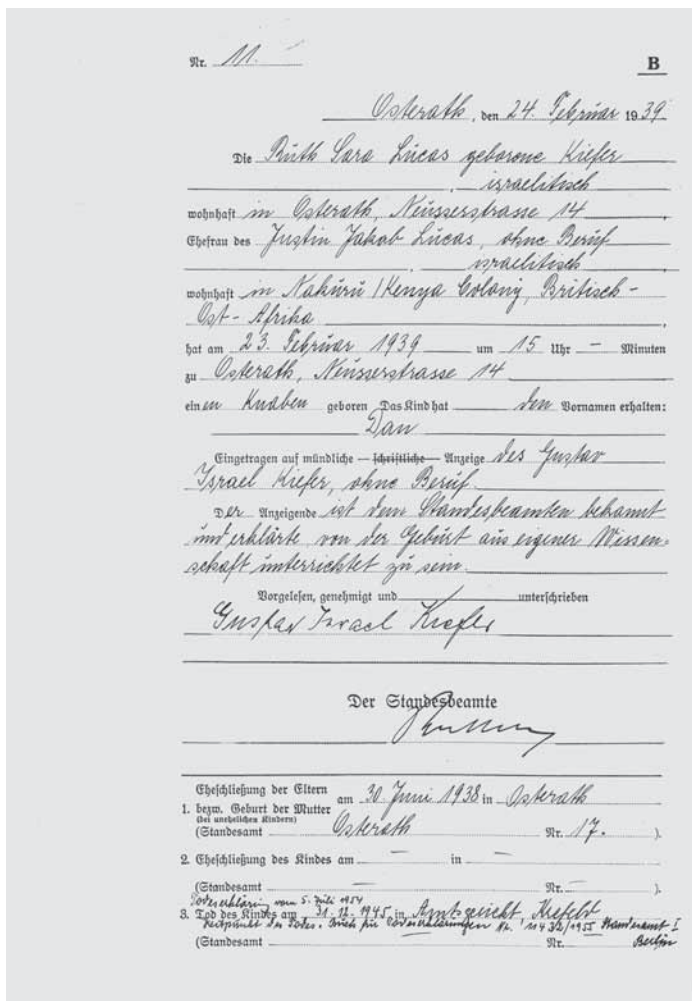 Nr. 11.
B
Osterath, den 24. Februar 1939
Die Ruth Sara Lucas geborene Kiefer
, israelitisch
wohnhaft in Osterath, Neusserstrasse 14
Ehefrau des Justin Jakob Lucas, ohne Beruf
, israelitisch
wohnhaft in Nakuru / Kenya Colony, Britisch-
Ost-Afrika,
hat am 23. Februar 1939 um 15 Uhr – Minuten
zu Osterath, Neusserstrasse 14
einen Knaben geboren Das Kind hat den Vornamen erhalten:
Dan
Eingetragen auf mündliche – schriftliche – Anzeige des Gustav
Israel Kiefer, ohne Beruf.
Der Anzeigende ist dem Standesbeamten bekannt
und erklärte, von der Geburt aus eigener Wissen-
schaft unterrichtet zu sein.
Vorgelesen, genehmigt und unterschrieben
Gustav Israel Kiefer
Der Standesbeamte
Eheschließung der Eltern am 30. Juni 1938 in Osterath
1. bezw. Geburt der Mutter
(bei unehelichen Kindern)
(Standesamt Osterath Nr. 17. ).
2. Eheschließung des Kindes am – in –
(Standesamt – Nr. – ).
Todeserklärung vom 5. Juli 1954
3. Tod des Kindes am 31.12.1945 in Amtsgericht, Krefeld
Zeitpunkt des Todes. Buch für Todeserklärungen Nr. 11432/1955 Standesamt I
Berlin
(Standesamt Nr.